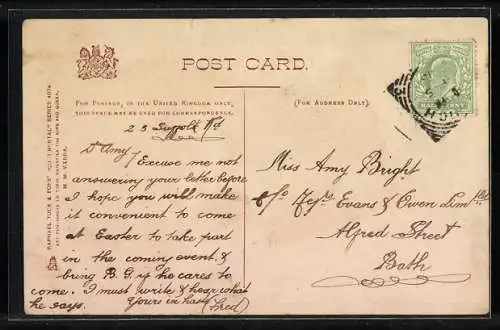 POST CARD.
FOR POSTAGE, IN THE UNITED KINGDOM ONLY,
THIS SPACE MAY BE USED FOR CORRESPONDENCE.
(FOR ADDRESS ONLY.)
HALFPENNY
23 Suffolk Rd
Dr Amy/ Excuse me not
answering your letter before
I hope you will make
it convenient to come
at Easter to take part
in the coming event &
bring B. G. if he cares to
come. I must write & hear what
he says. Yours in haste (Fred)
Miss Amy Bright
c/o Evans & Owen Limtd
Alfred Street
Bath
RAPHAEL TUCK & SONS'